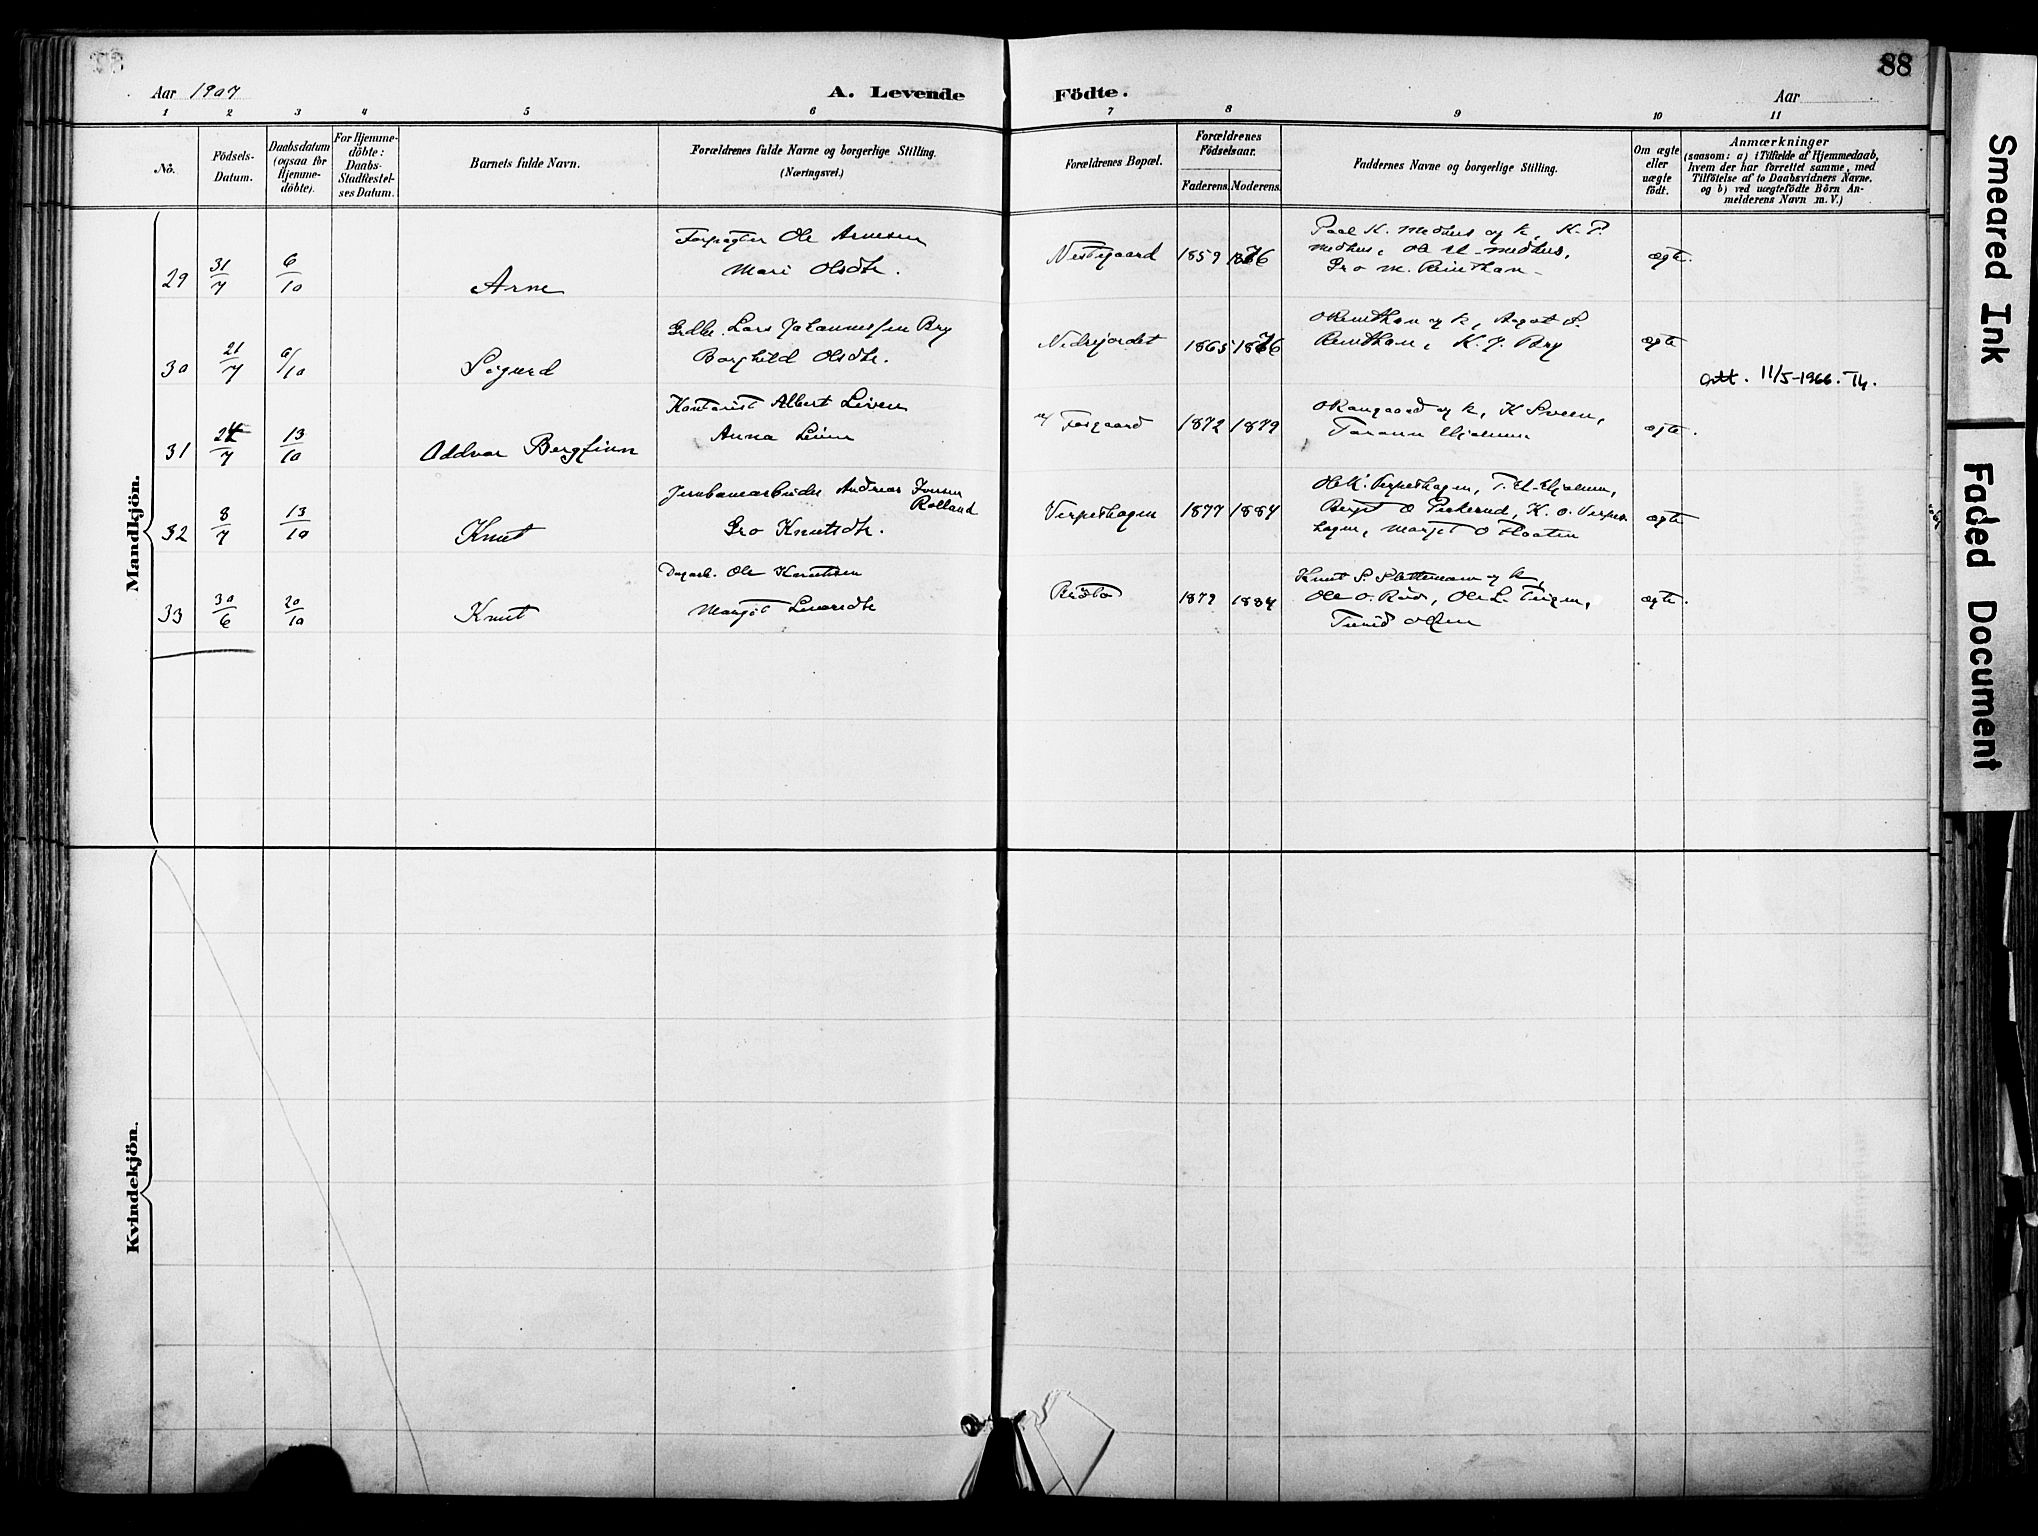 88
Aar 1907
A. Levende Födte.
Aar
1 2 3 4 5 6 7 8 9 10 11
No.
Födsels-
Datum.
Daabsdatum
(ogsaa for
Hjemme-
döbte).
For Hjemme-
döbte:
Daabs-
Stadfæstel-
ses Datum.
Barnets fulde Navn.
Forældrenes fulde Navne og borgerlige Stilling.
(Næringsvei.)
Forældrenes Bopæl.
Forældrenes
Födselsaar.
Faderens. Moderens.
Faddernes Navne og borgerlige Stilling.
Om ægte
eller
uægte
födt.
Anmærkninger
(saasom: a) i Tilfælde af Hjemmedaab,
hvem der har forrettet samme, med
Tilföielse af to Daabsvidners Navne.
og b) ved uægtefödte Börn An-
melderens Navn m. V.)
Mandkjön.
29 31/7 6/10 Arne
Forpagter Ole Arnesen
Mari Olsdtr.
Nestegaard 1859 1876
Paal K. Medhus og k, K. P.
Medhus, Ole U. Medhus,
Gro M.
ægte.
30 21/7 6/10 Sigurd
Grdbr. Lars Johannessen Bry
Borghild Olsdtr.
Nedrejordet 1865 1876
og k, Aagot S.
K. J. Bry
ægte
Att. 11/5-1966. Th.
31 24/7 13/10 Oddvar Bergfinn
Kontorist Albert Liven
Anna Liven
1872 1879
og k, K Sveen,
ægte.
32 8/7 13/10 Knut
Jernbanearbeider Andreas Iversen
Rolland
Gro Knutsdtr.
Verpeshagen 1877 1884
Ole K. Verpeshagen,
Birgit O K. O. Verpes-
hagen, Margit O Flaaten
ægte
33 30/6 20/10 Knut
Dagarb. Ole Knutsen
Margit
1879 1884
Knut S. og k,
Ole O. Ole L.
Turid Olsen
ægte.
Kvindekjön.
Smeared Ink
Faded Document